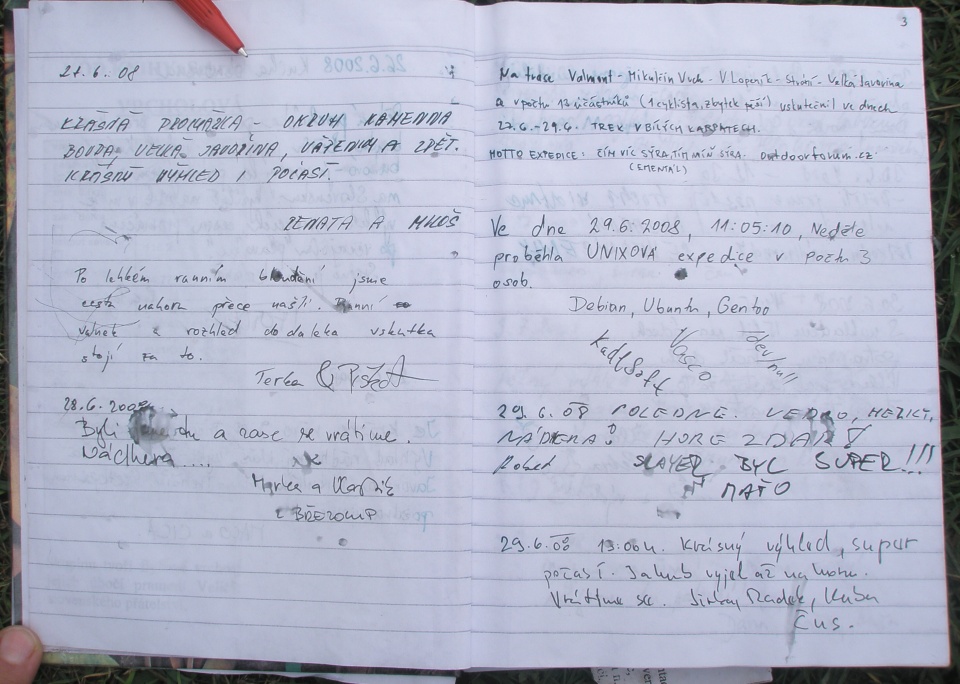 27.6. 08
KRÁSNÁ PROCHÁZKA - OKRUH KAMENNÁ
BOUDA, VELKÁ JAVOŘINA, A ZPĚT.
KRÁSNÝ VÝHLED I POČASÍ.
RENATA A MILOŠ
Po lehkém ranním bloudění jsme
cestu nahoru přece našli. Ranní
a rozhled do daleka vskutku
stojí za to.
Terka
28.6. 2008
Byli a zase se vrátíme.
Nádhera....
a
z BŘEZOLUP
3
Na trase Valmont - Mikulčin Vrch - V. Lopeník - Strání - Velká Javorina
a v počtu 12 účastníků (1 cyklista, zbytek pěší) uskutečnil ve dnech
27.6. - 29.6. TREK V BÍLÝCH KARPATECH.
MOTTO EXPEDICE: ČÍM VÍC SÝRA, TÍM MÍŇ SÝRA. outdoorforum.cz
(EMENTÁL)
Ve dne 29.6.2008, 11:05:10, Neděle
proběhla UNIXOVA expedice v počtu 3
osob.
Debian, Ubuntu, Gentoo
KadlSoft Vasco /dev/null
29.6.08 POLEDNE. VEDRO, HEZKY,
NÁDHERA! HORE ZDAR!
SLAYER BYL SUPER!!!
MAŤO
29.6.08 13:06h. Krásný výhled, super
počasí. Jakub vyjel až nahoru.
Vrátíme se. Radek, Kuba
Čus.